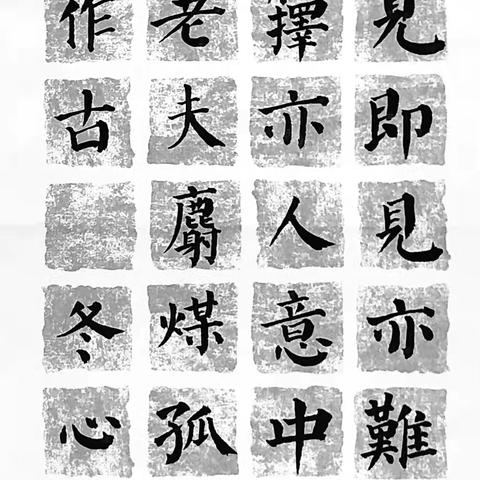 見即見亦難
亦人意中
老夫麝煤孤
作古
冬心